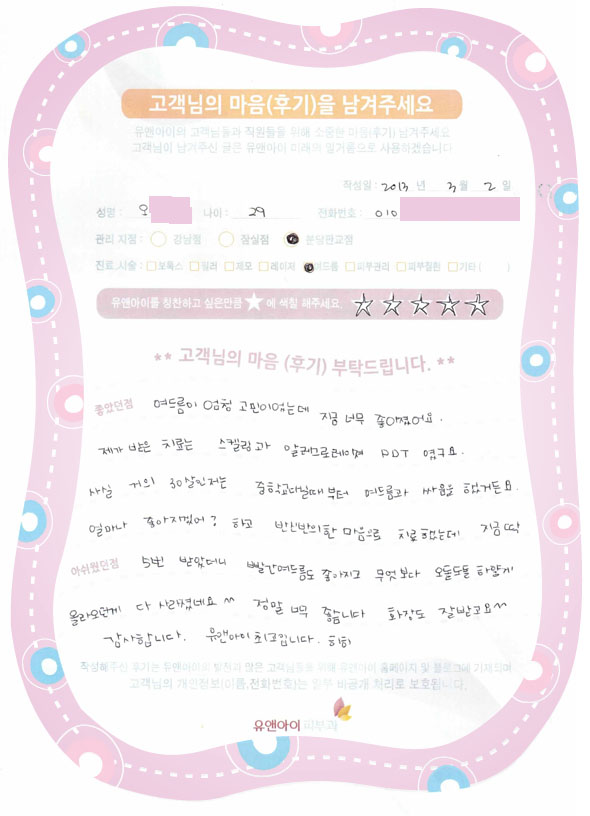 고객님의 마음(후기)을 남겨주세요
유앤아이의 고객님들과 직원들을 위해 소중한 마음(후기) 남겨주세요
고객님이 남겨주신 글은 유앤아이 미래의 밑거름으로 사용하겠습니다
작성일 : 2013 년 3 월 2 일
성명 : 오 나이 : 29 전화번호 : 010
관리 지점 : 강남점 잠실점 분당판교점
진료 시술 : 보톡스 필러 제모 레이저 여드름 피부관리 피부질환 기타 ( )
유앤아이를 칭찬하고 싶은만큼 ★ 에 색칠 해주세요 ☆☆☆☆☆
** 고객님의 마음 (후기) 부탁드립니다. **
좋았던점 여드름이 엄청 고민이었는데 지금 너무 좋아졌어요.
제가 받은 치료는 스켈링과 알레그로레이져 PDT 였구요.
사실 거의 30살인저는 중학교다닐때부터 여드름과 싸움을 했거든요.
얼마나 좋아지겠어? 하고 반신반의한 마음으로 치료했는데 지금 딱
아쉬웠던점 5번 받았더니 빨간여드름도 좋아지고 무엇보다 오돌토돌 하얗게
올라오던게 다 사라졌네요^^ 정말 너무 좋습니다 화장도 잘받고요^^
감사합니다. 유앤아이 최고입니다. 히히
작성해주신 후기는 유앤아이의 발전과 많은 고객님들을 위해 유앤아이 홈페이지 및 블로그에 기재되며
고객님의 개인정보(이름,전화번호)는 일부 비공개 처리로 보호됩니다.
유앤아이피부과